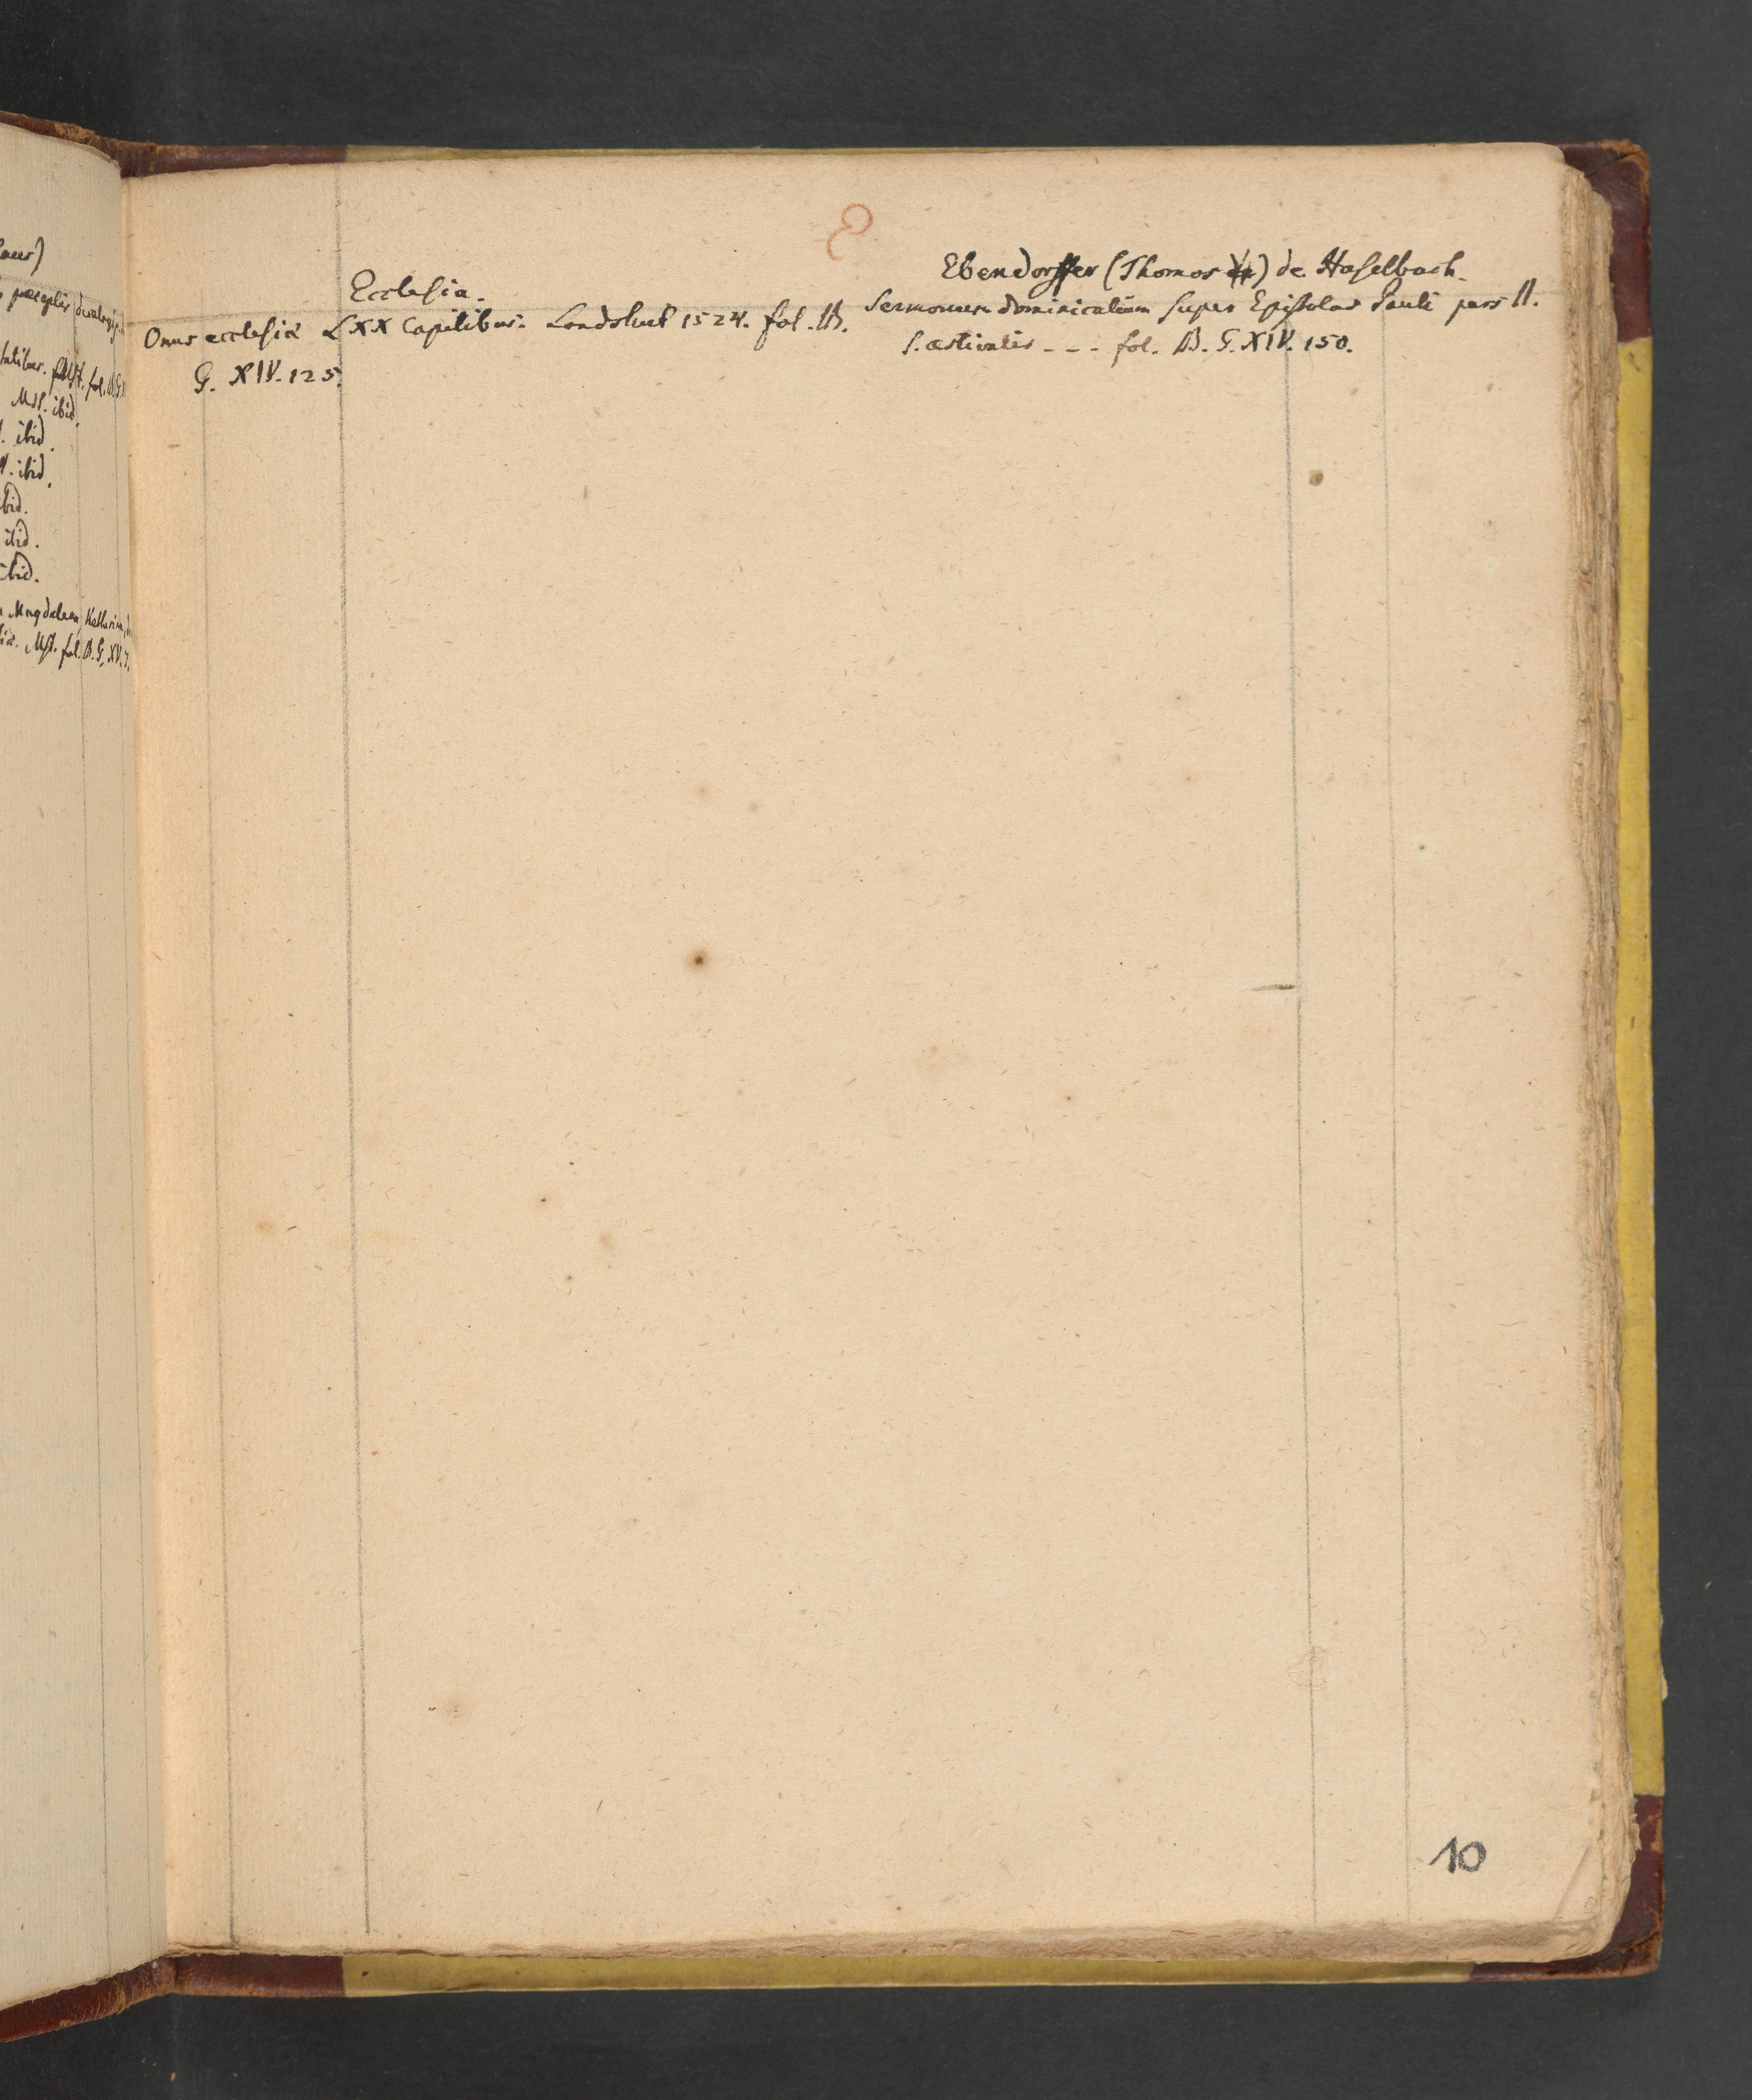 aus)
decalogi
fol. B. G.
Mst. ibid.
ibid.
ibid.
ibid.
ibid.
ibid.
Magdalena, Katharina
Mst. fol. B. G. XV. 7.
E
Ecclesia.
Onus ecclesiæ LXX Capitibus. Landshut 1524. fol. B.
G. XIV. 125.
Ebendorffer (Thomas) de Haselbach.
Sermonum dominicalium super Epistolas Pauli pars II.
s. æstivalis - - - fol. B. G. XIV. 150.
10